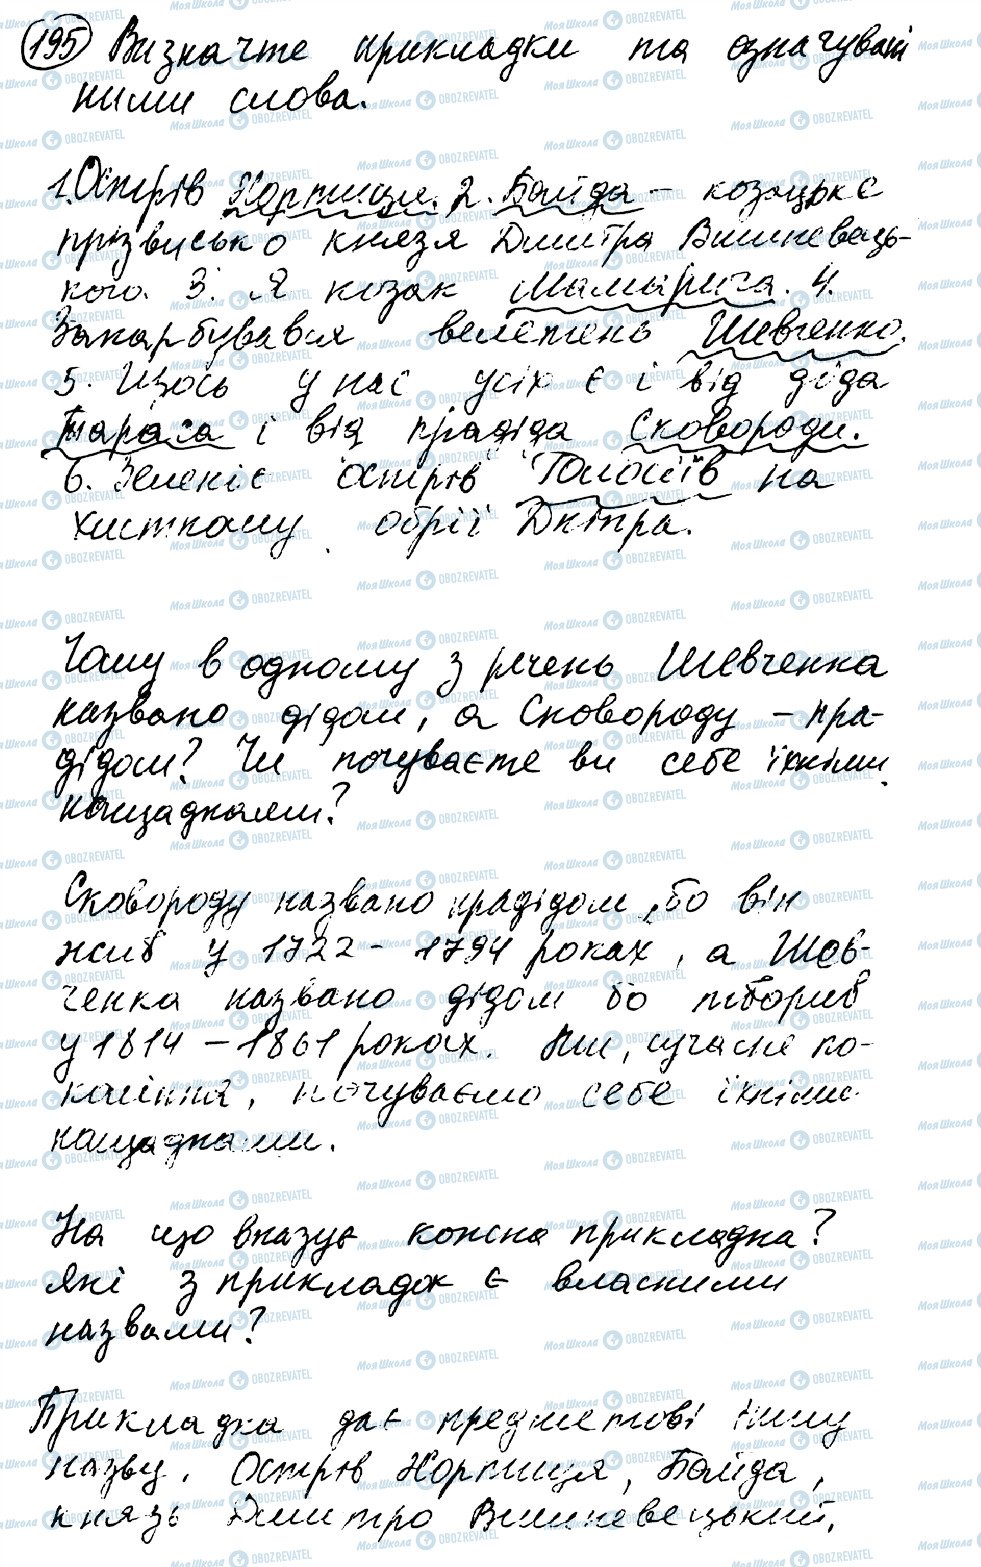 195 Визначте прикладки та означувані
ними слова.
1. Острів Хортиця. 2. Байда – козацьке
прізвисько князя Дмитра Вишневець-
кого. 3. Я козак Мамарига. 4.
Закарбувався велетень Шевченко.
5. Щось у нас усіх є і від діда
Тараса і від прадіда Сковороди.
6. Зеленіє острів Голосіїв на
хисткому обрії Дніпра.
Чому в одному з речень Шевченка
названо дідом, а Сковороду – пра-
дідом? Чи почуваєте ви себе їхніми
нащадками?
Сковороду названо прадідом, бо він
жив у 1722 – 1794 роках, а Шев-
ченка названо дідом бо творив
у 1814 – 1861 роках. Ми, сучасне по-
коління, почуваємо себе їхніми
нащадками.
На що вказує кожна прикладка?
Які з прикладок є власними
назвами?
Прикладка дає предметові іншу
назву. Острів Хортиця, Байда,
князь Дмитро Вишневецький,